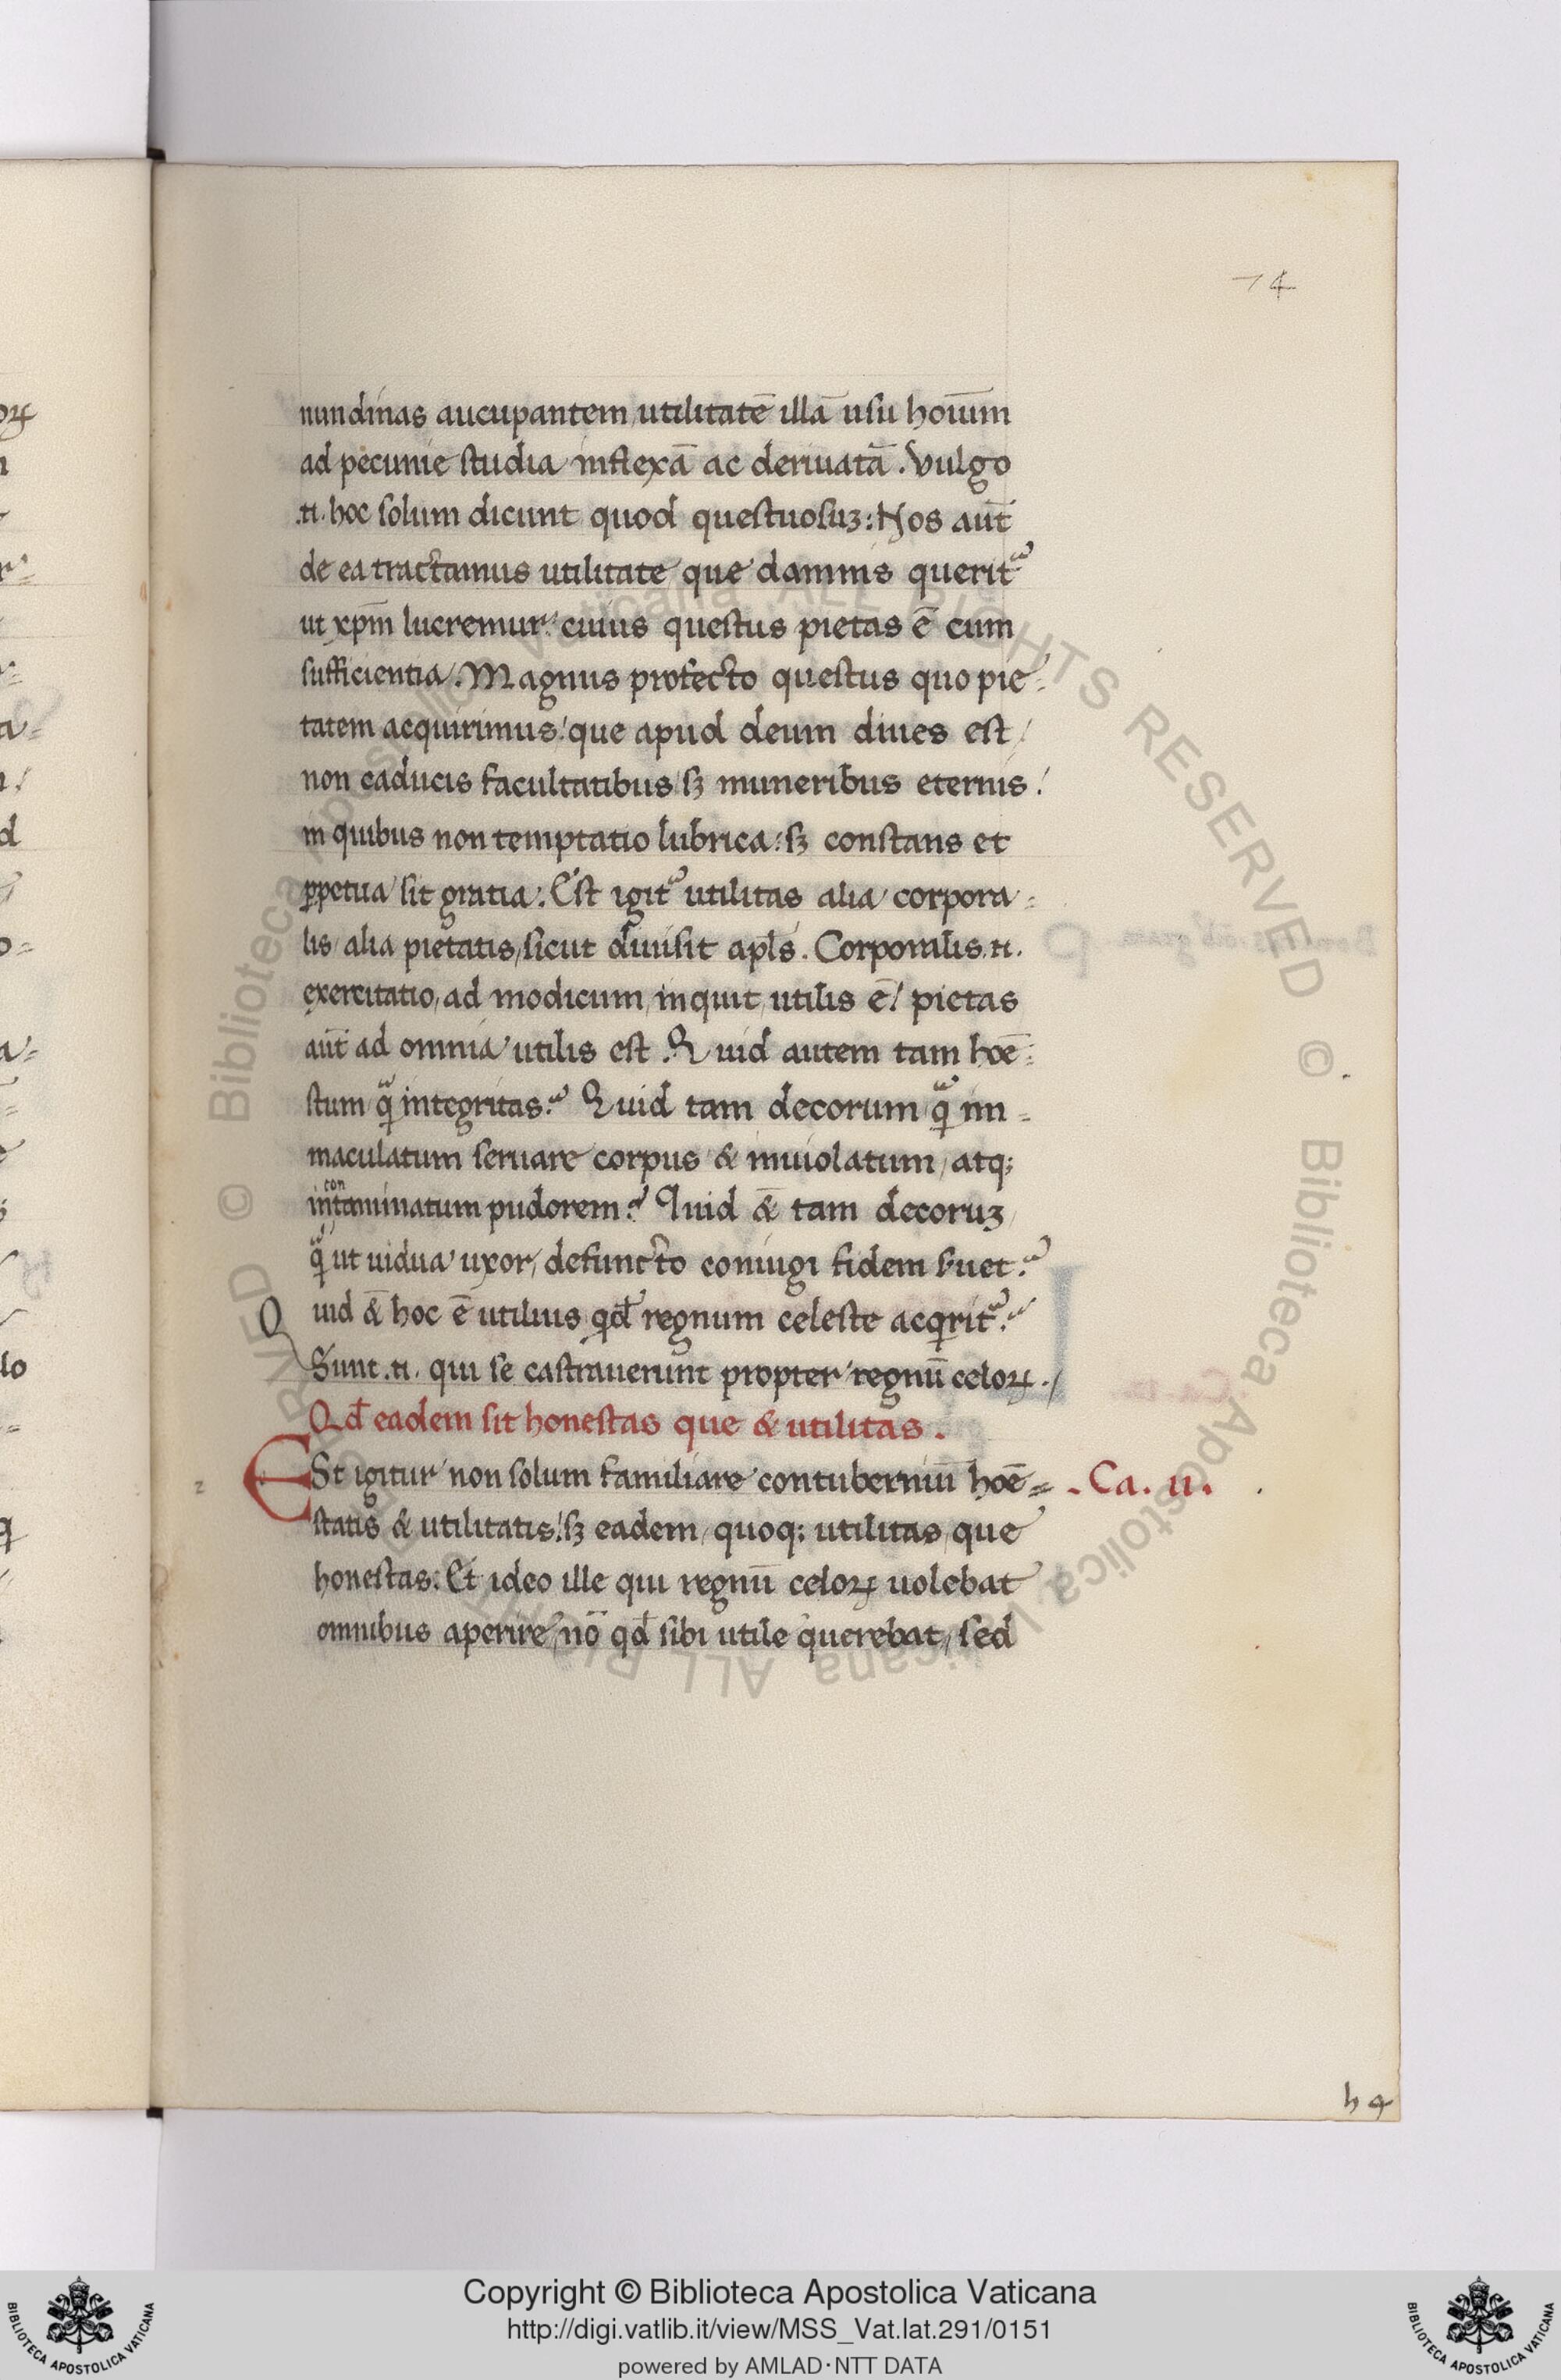 74
nundinas aucupantem utilitatē illā usu hoīum
ad pecunie studia inflexā ac deriuatā. Vulgo
.n. hoc solum dicunt quod questuosuꝫ: Nos aūt
de ea tractamus utilitate que damnis querit᷑
ut xp̄m lucremur: cuius questus pietas ē cum
sufficientia. Magnus profecto questus quo pie=
tatem acquirimus! que apud deum diues est/
non caducis facultatibus/ sꝫ muneribus eternis!
in quibus non temptatio lubrica: sꝫ constans et
ꝑpetua sit gratia: Est igit᷑ utilitas alia corpora=
lis/ alia pietatis, sicut diuisit apl̄s. Corporalis .n.
exercitatio, ad modicum, inquit, utilis ē! pietas
aūt ad omnia utilis est. Quid autem tam hoē=
stum q̣ͣ integritas? Quid tam decorum q̣ͣ im=
maculatum seruare corpus & inuiolatum, atq;
incontaminatum pudorem? Quid &̄ tam decoruꝫ
q̣ͣ ut uidua uxor, defuncto coniugi fidem s̄uet?
Quid &̄ hoc ē utilius qđ regnum celeste acqrit᷑?
Sunt .n. qui se castrauerunt propter regnū celoꝝ./
Qđ eadem sit honestas que & utilitas.
ESt igitur non solum familiare contuberniū hoē=
.Ca. ii.
statis & utilitatis! sꝫ eadem quoq; utilitas que
honestas. Et ideo ille qui regnū celoꝝ uolebat
omnibus aperire, nō qđ sibi utile querebat, sed
h 4
© Biblioteca Apostolica Vaticana ALL RIGHTS RESERVED © Biblioteca Apostolica Vaticana ALL RIGHTS RESERVED
Copyright © Biblioteca Apostolica Vaticana
http://digi.vatlib.it/view/MSS_Vat.lat.291/0151
powered by AMLAD·NTT DATA
BIBLIOTECA APOSTOLICA VATICANA
BIBLIOTECA APOSTOLICA VATICANA